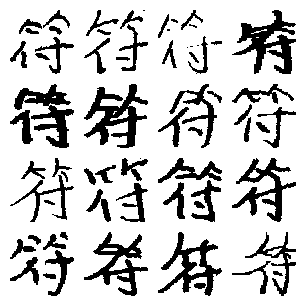 符符符符
符符符符
符符符符
符符符符